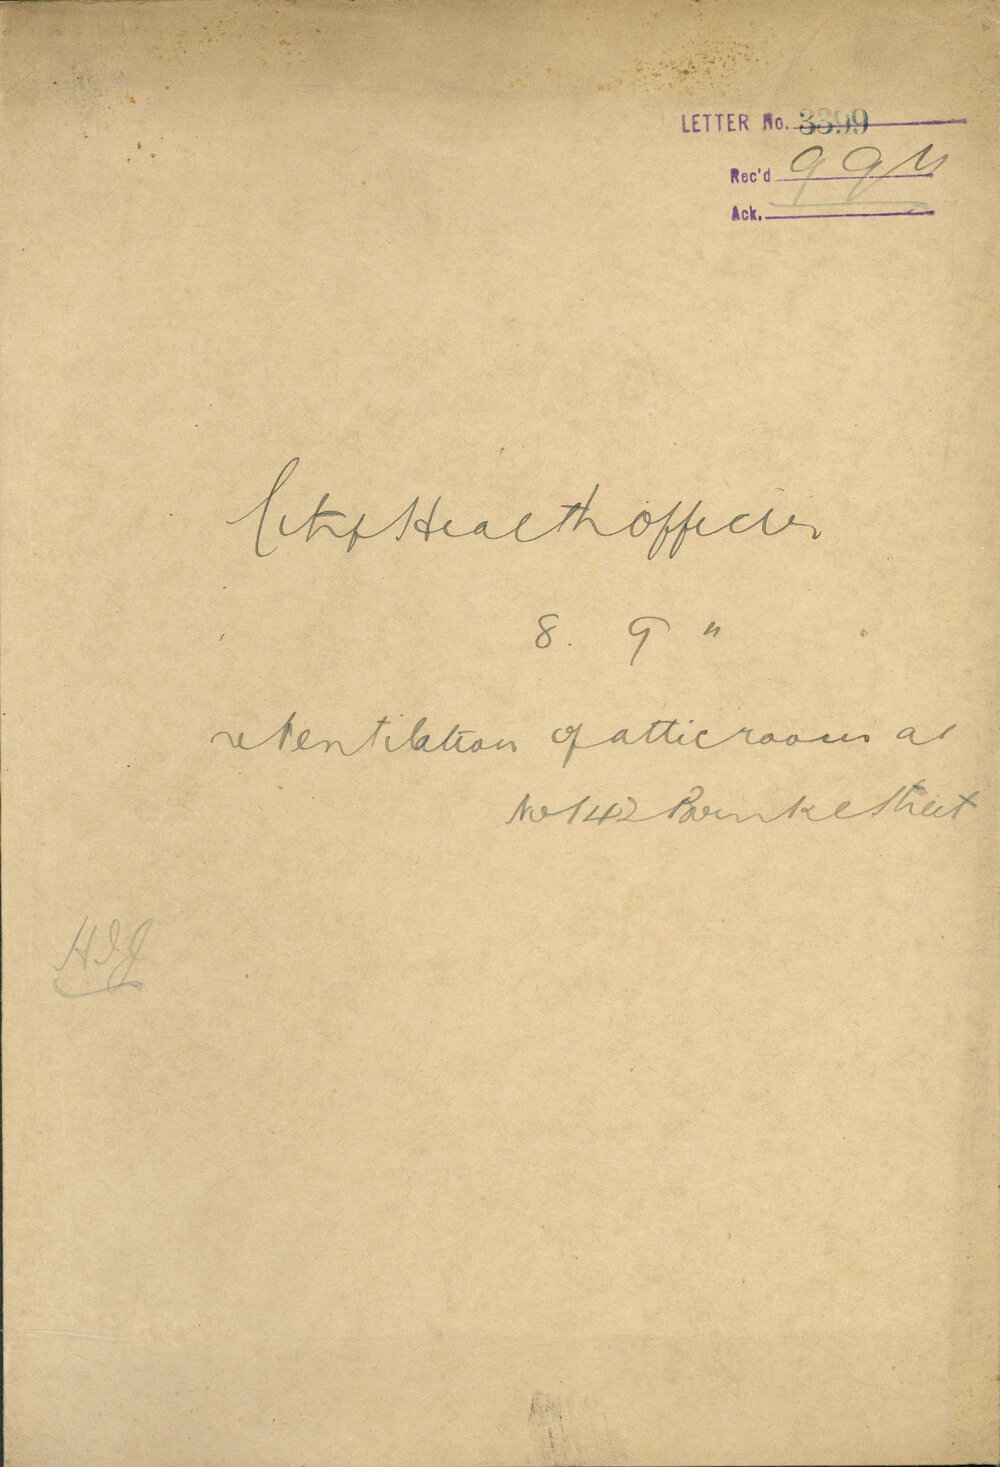 LETTER No. 3399
Rec'd 9 9 11
Ack.
City Health Officer
8. 9 "
re Ventilation of attic room at
No 142 Bourke Street
HIJ